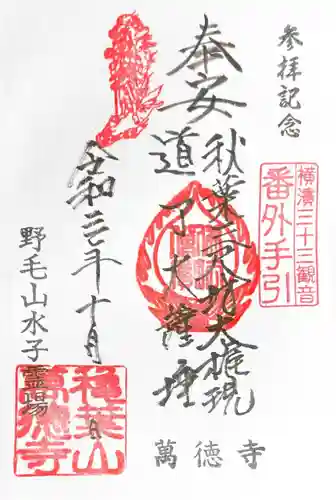 参拝記念
横濱三十三観音
番外手引
奉安
秋葉三尺坊大権現
道了大薩埵
令和三年十月 日
野毛山水子霊場
萬徳寺
秋葉山
萬徳寺